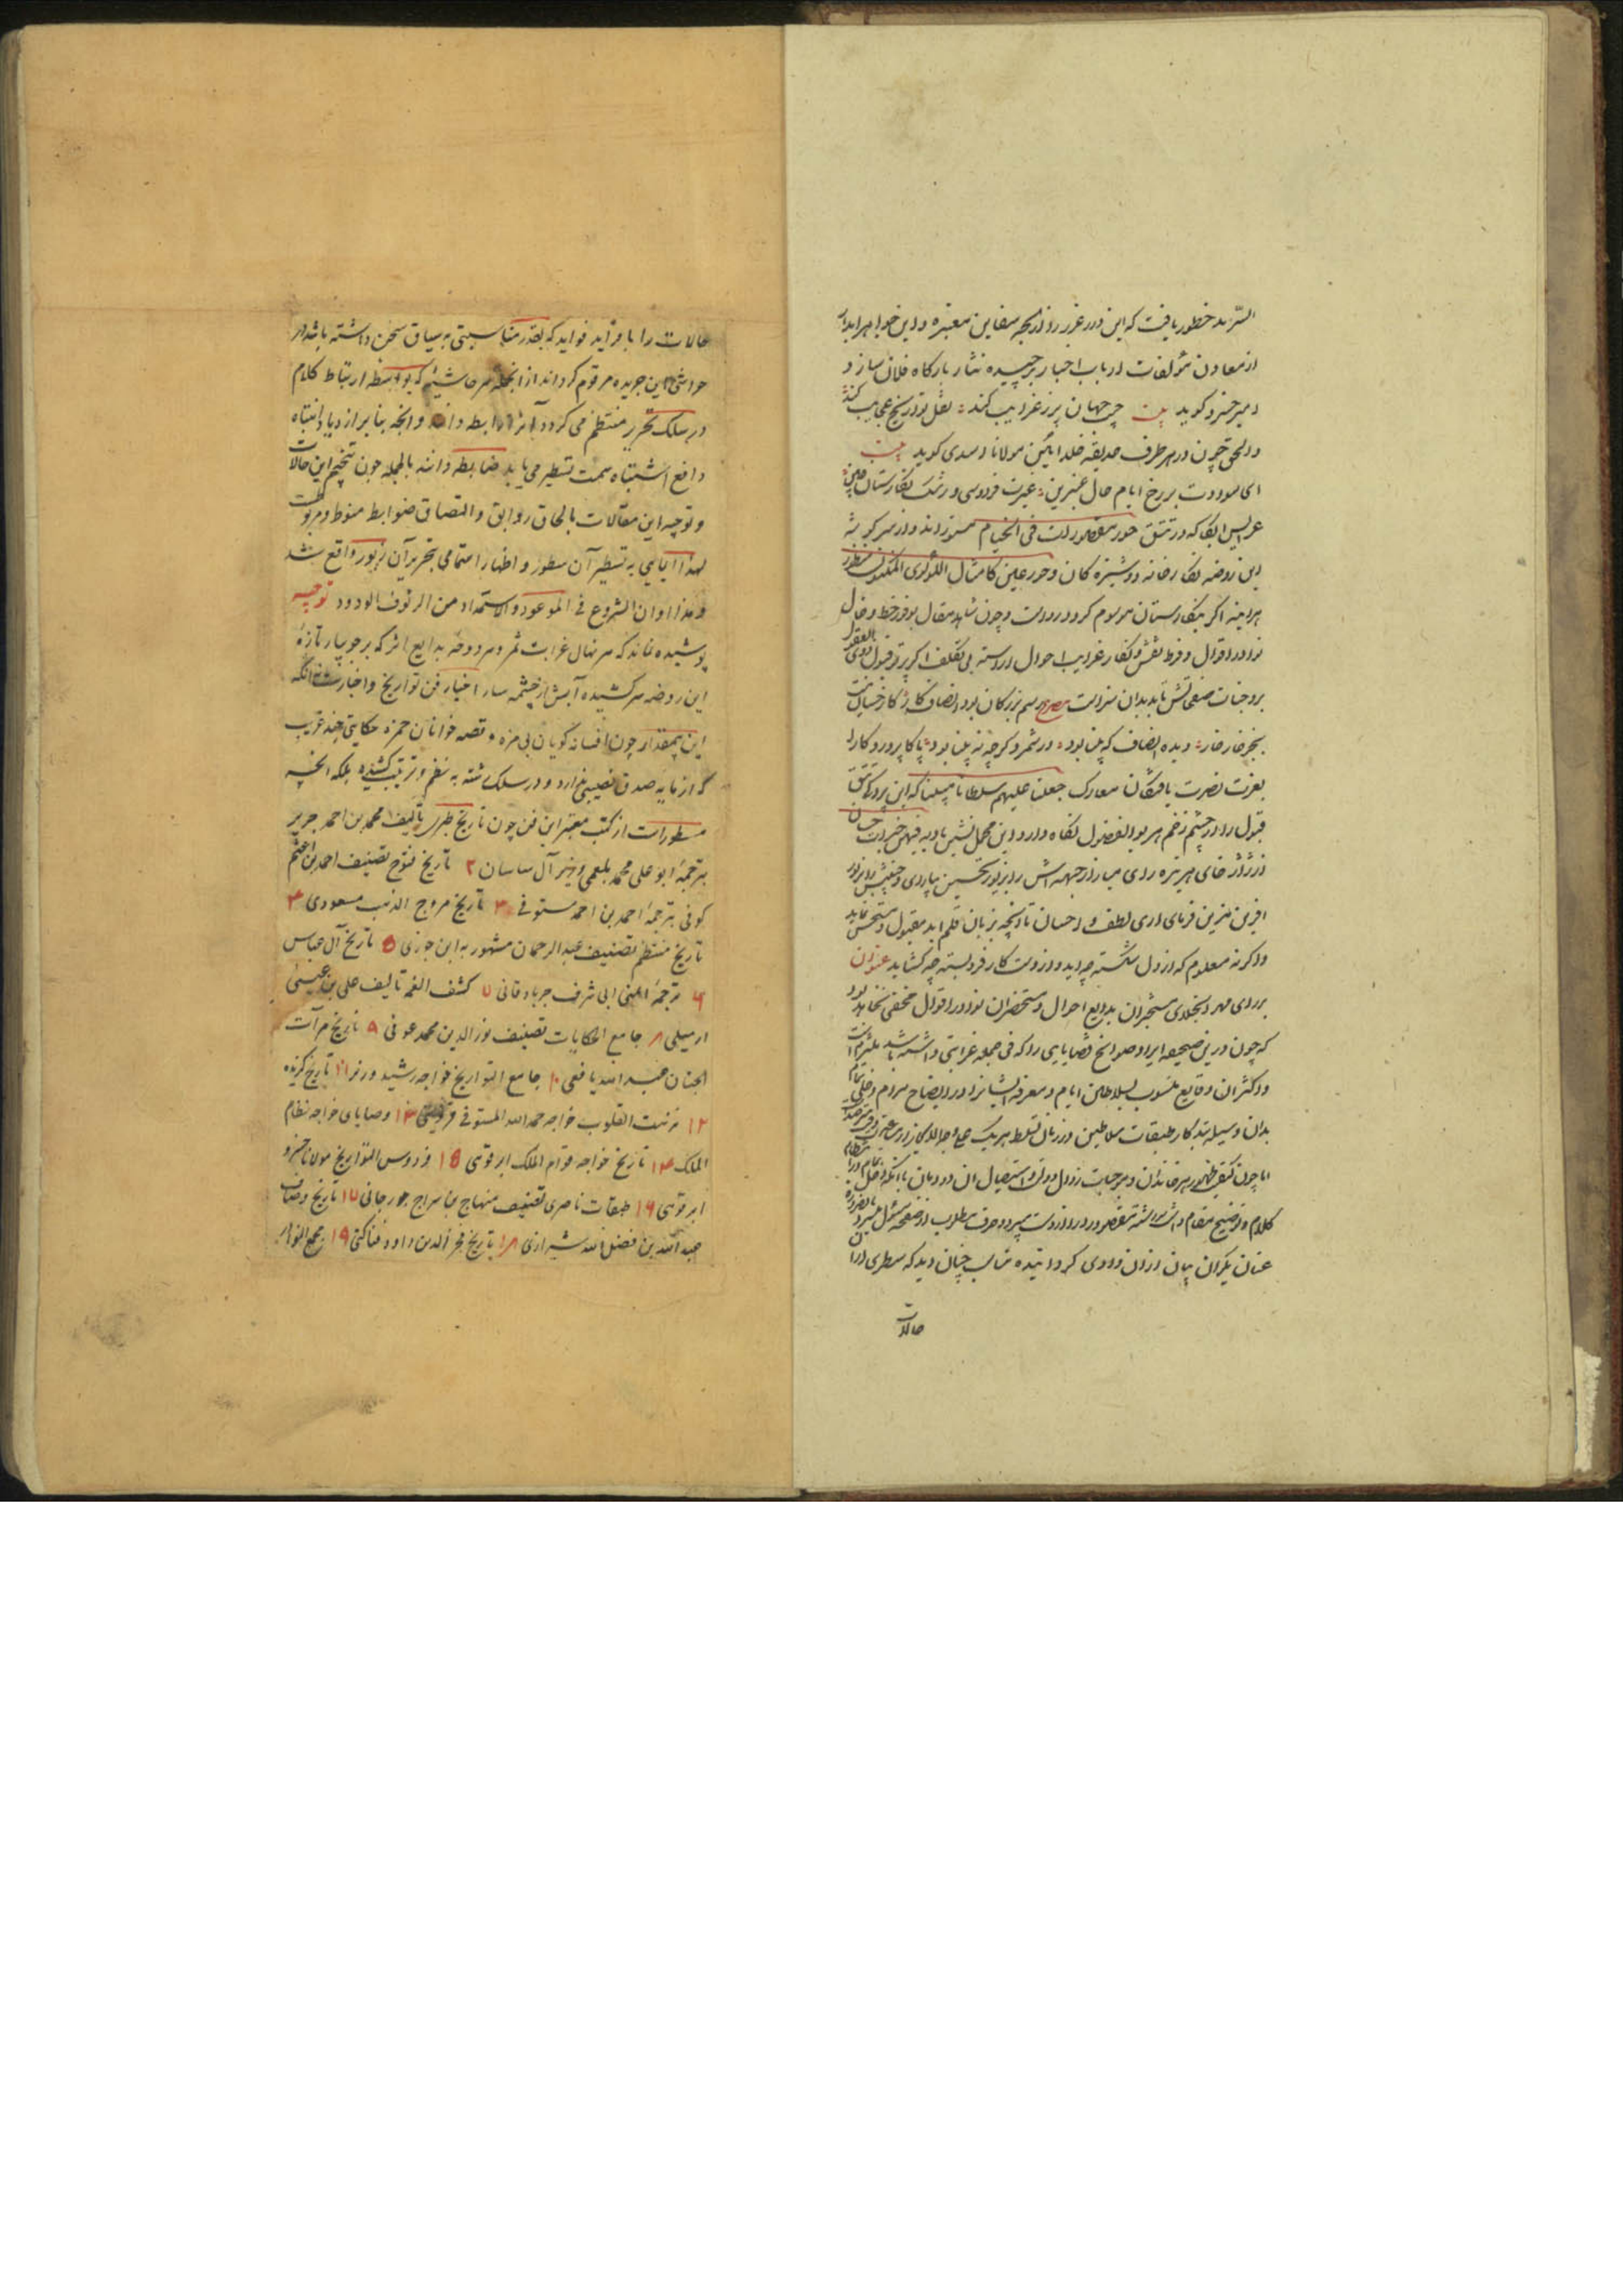 السرّید خطور یافت که این درر غرر را از لجه سفاین معتبره و این جواهر ابدار
از معادن مؤلفات ارباب اخبار برچیده نثار بارگاه فلان ساز و
امیر خسرو کوید بیت چو جهان پر ز غرایب کند نقل تواریخ عجایب کند
والحق چون در هر طرف حدیقه خلد ایین مولانا اسدی کوید بیت
ای سوادت بر رخ ایام خال عنبرین عبرت فردوسی و رشک نکارستان چین
عرایس ابکار که در تتق حور مقصورات فی الخیام مستورند و از سر کرشمه
این روضه نکارخانه دوشیزه کان و حور عین کامثال اللؤلؤ المکنون منظور
هراینه اکر بنکارستان موسوم کردد رواست و چون شاهد مقال بوفور خط و خال
نوادر اقوال و فرط نقش و نکار غرایب احوال اراسته بی تکلف اکر پرتو قبول ذوی العقول
بر وجنات صفحاتش تابد بدان سزاست مصرع رسم بزرکان بود انصاف کار
بجز خار خار دیده انصاف که بینا بود در شمرد کرچه نه بینا بود پاکا پروردکارا
بعزت نصرت یافتکان معارک جعلنا علیهم سلطانا مبینا که این پردکی تتق
قبول را از چشم زخم هر بوالفضول نکاه دار و این محمل نشین بادیه فیهن خیرات حسان
از ژاژ خای هر تیره رای مبارز جبهه اش را بزیور تحسین بیارای و جبینش را بزیور
افرین تزیین فرمای ازی لطف و احسان تا انچه بزبان قلم اید مقبول و مستحسن نماید
واکر نه معلوم که از دل شکسته چه اید و از دست کار فرو بسته چه کشاید عنوان
بر رای مهر انجلای مستخبران بدایع احوال و مستحضران نوادر اقوال مخفی نخواهد بود
که چون درین صحیفه ایراد سوانح قضایایی را که فی الجمله غرابتی داشته باشد ملتزم است
و اکثر ان وقایع منسوب بسلاطین ایام و معرفه ایشانرا در ایضاح مرام دخلی تمام
بدان وسیله بتذکار طبقات سلاطین و زمان تسلط هریک
اما چون کیفیت ظهور هر خاندان و موجبات زوال دولت و استیصال ان دودمان باانکه دخل تمام در انتظام
کلام و توضیح مقام داشت
عنان یکران بیان از ان وادی کردانیده مناسب چنان دید که سطری ازان
حالات
حالات را با فراید فواید که بقدر مناسبتی به سیاق سخن داشته باشد در
حواشی این جریده مرقوم کرداند از انجمله هر حاشیه که بواسطه ارتباط کلام
در سلک تحریر منتظم می کردد آنرا رابطه داند و انچه بنابر ازدیاد انتباه
دافع اشتباه سمت تسطیر می یابد ضابطه دانند بالجمله چون تتمیم این حالات
و توجیه این مقالات بالحاق روابط و التصاق ضوابط منوط و مربوطست
لهذا ایمایی به تسطیر آن سطور و اظهار اهتمامی بتحریر آن زبور واقع شد
و هذا اوان الشروع فی الموعود و الاستمداد من الرئوف الودود توجیه
پوشیده نماند که هر نهال غرابت ثمر و هر دوحه بدایع اثر که بر جویبار تازه
این روضه سرکشیده آبش از چشمه سار اخبار فن تواریخ و اخبارست نه آنکه
این بیمقدار چون افسانه کویان بی مزه و قصه خوانان حمزه حکایتی چند غریب
که از مایه صدق نصیبی ندارد و در سلک شته به نظم و ترتیب کشیده بلکه انچه
مسطورات از کتب معتبر این فن چون تاریخ طبری تالیف محمد بن احمد جریر
بترجمهٔ ابو علی محمد بلعمی وزیر آل سامان ۲ تاریخ فتوح تصنیف احمد بن اعثم
کوفی بترجمهٔ احمد بن احمد مستوفی ۳ تاریخ مروج الذهب مسعودی ۴
تاریخ منتظم تصنیف عبد الرحمان مشهور به ابن جوزی ۵ تاریخ آل عباس
۶ ترجمهٔ الیمنی ابی شرف جربادقانی ۷ کشف الغمه تالیف علی بن عیسی
اردبیلی ۸ جامع الحکایات تصنیف نور الدین محمد عوفی ۹ تاریخ مرآت
الجنان عبد الله یافعی ۱۰ جامع التواریخ خواجه رشید وزیر ۱۱ تاریخ کزیده
۱۲ نزهت القلوب خواجه حمد الله المستوفی قزوینی ۱۳ وصایای خواجه نظام
الملک ۱۴ تاریخ خواجه قوام الملک ابرقوهی ۱۵ فردوس التواریخ مولانا خسرو
ابرقوهی ۱۶ طبقات ناصری تصنیف منهاج بن سراج جورجانی ۱۷ تاریخ وصاف
عبد الله بن فضل الله شیرازی ۱۸ تاریخ فخر الدین داود فناکتی ۱۹ مجمع النوادر